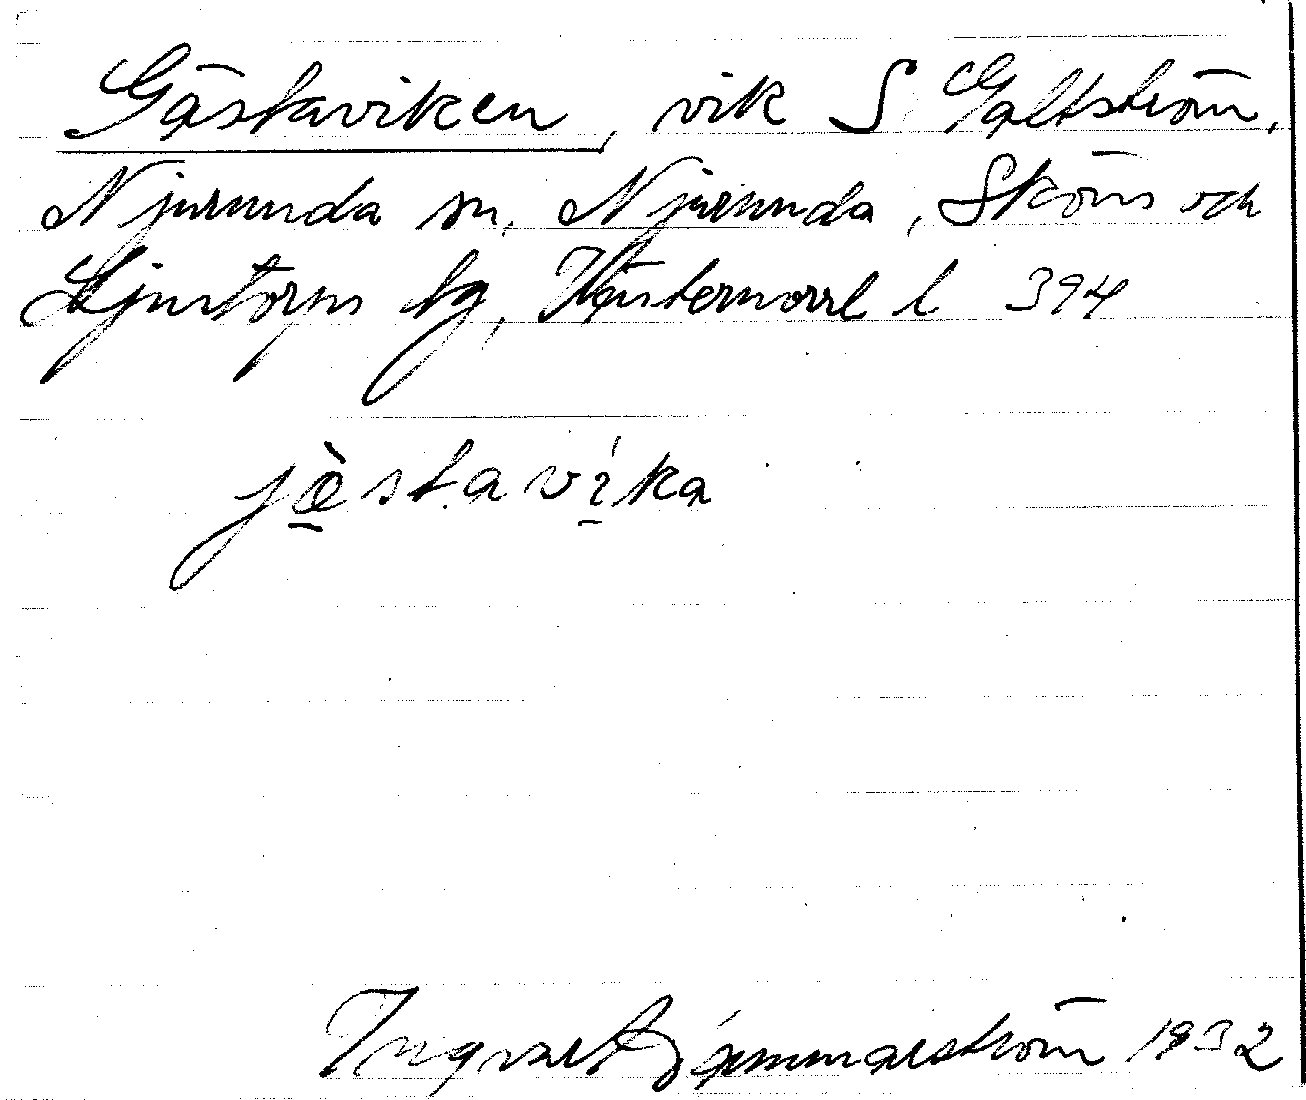 Gästaviken, vik S Galtström,
Njurunda sn, Njurunda, Sköns och
Ljustorps tg, Västernorrl l 394
jæ̀stavíka
Ingvar Jämmerström 1932